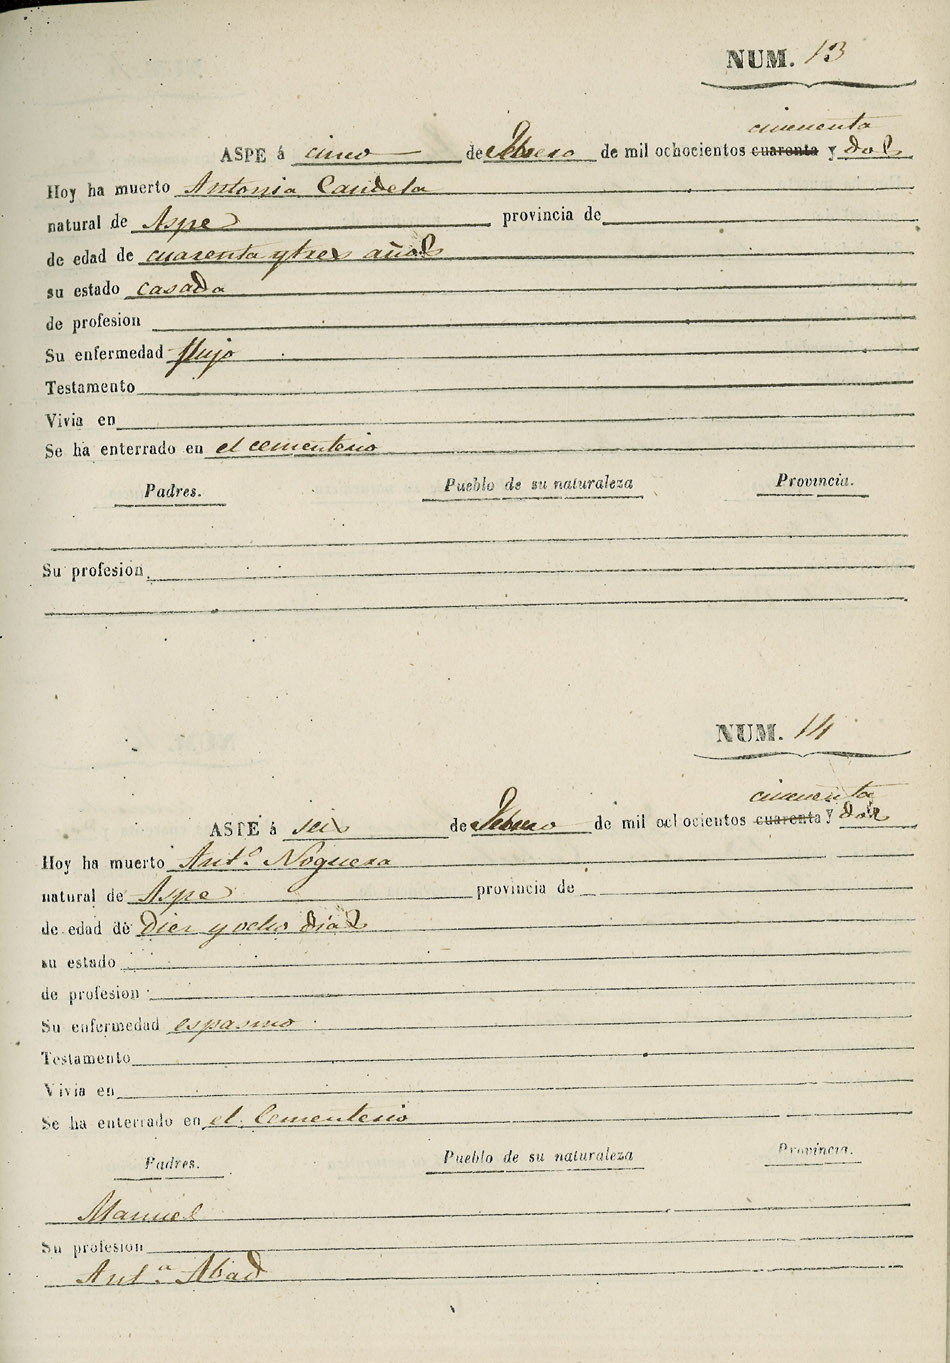 NUM. 13
cincuenta
ASPE á cinco de Febrero de mil ochocientos cuarenta y dos
Hoy ha muerto Antonia Candela
natural de Aspe provincia de
de edad de cuarenta y tres años
su estado casada
de profesion
Su enfermedad flujo
Testamento
Vivia en
Se ha enterrado en el cementerio
Padres. Pueblo de su naturaleza Provincia.
Su profesion
NUM. 14
cincuenta
ASPE á seis de Febrero de mil ochocientos cuarenta y dos
Hoy ha muerto Ant.º Noguera
natural de Aspe provincia de
de edad de Diez y ocho Días
su estado
de profesion
Su enfermedad espasmo
Testamento
Vivia en
Se ha enterrado en el Cementerio
Padres. Pueblo de su naturaleza Provincia.
Manuel
Su profesion
Ant.ª Abad